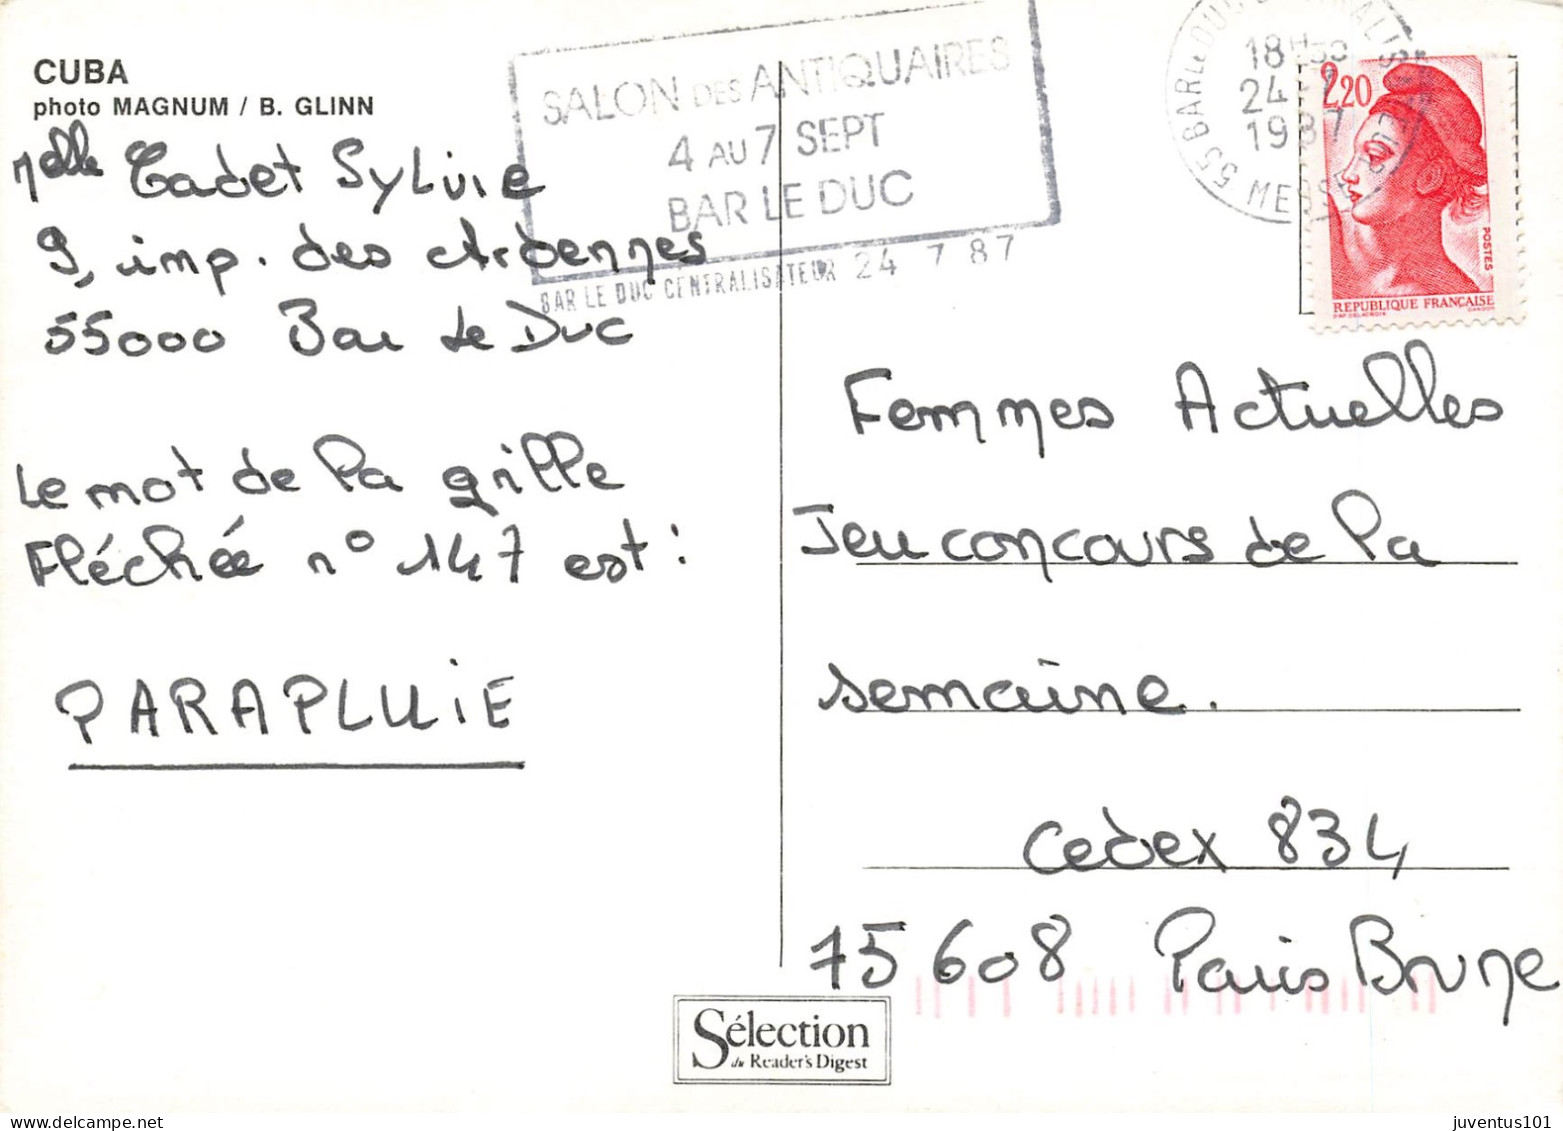 CUBA
photo MAGNUM / B. GLINN
Melle Cadet Sylvie
9, imp. des Ardennes
55000 Bar Le Duc
Le mot de la grille
Fléchée n° 147 est :
PARAPLUIE
SALON DES ANTIQUAIRES
4 AU 7 SEPT
BAR LE DUC
BAR LE DUC CENTRALISATEUR 24 7 87
18H30
24-7
1987
55 BAR LE DUC
2,20
POSTES
REPUBLIQUE FRANÇAISE
Femmes Actuelles
Jeu concours de la
semaine.
Cedex 834
75608 Paris Brune
Sélection
du Reader's Digest
juventus101